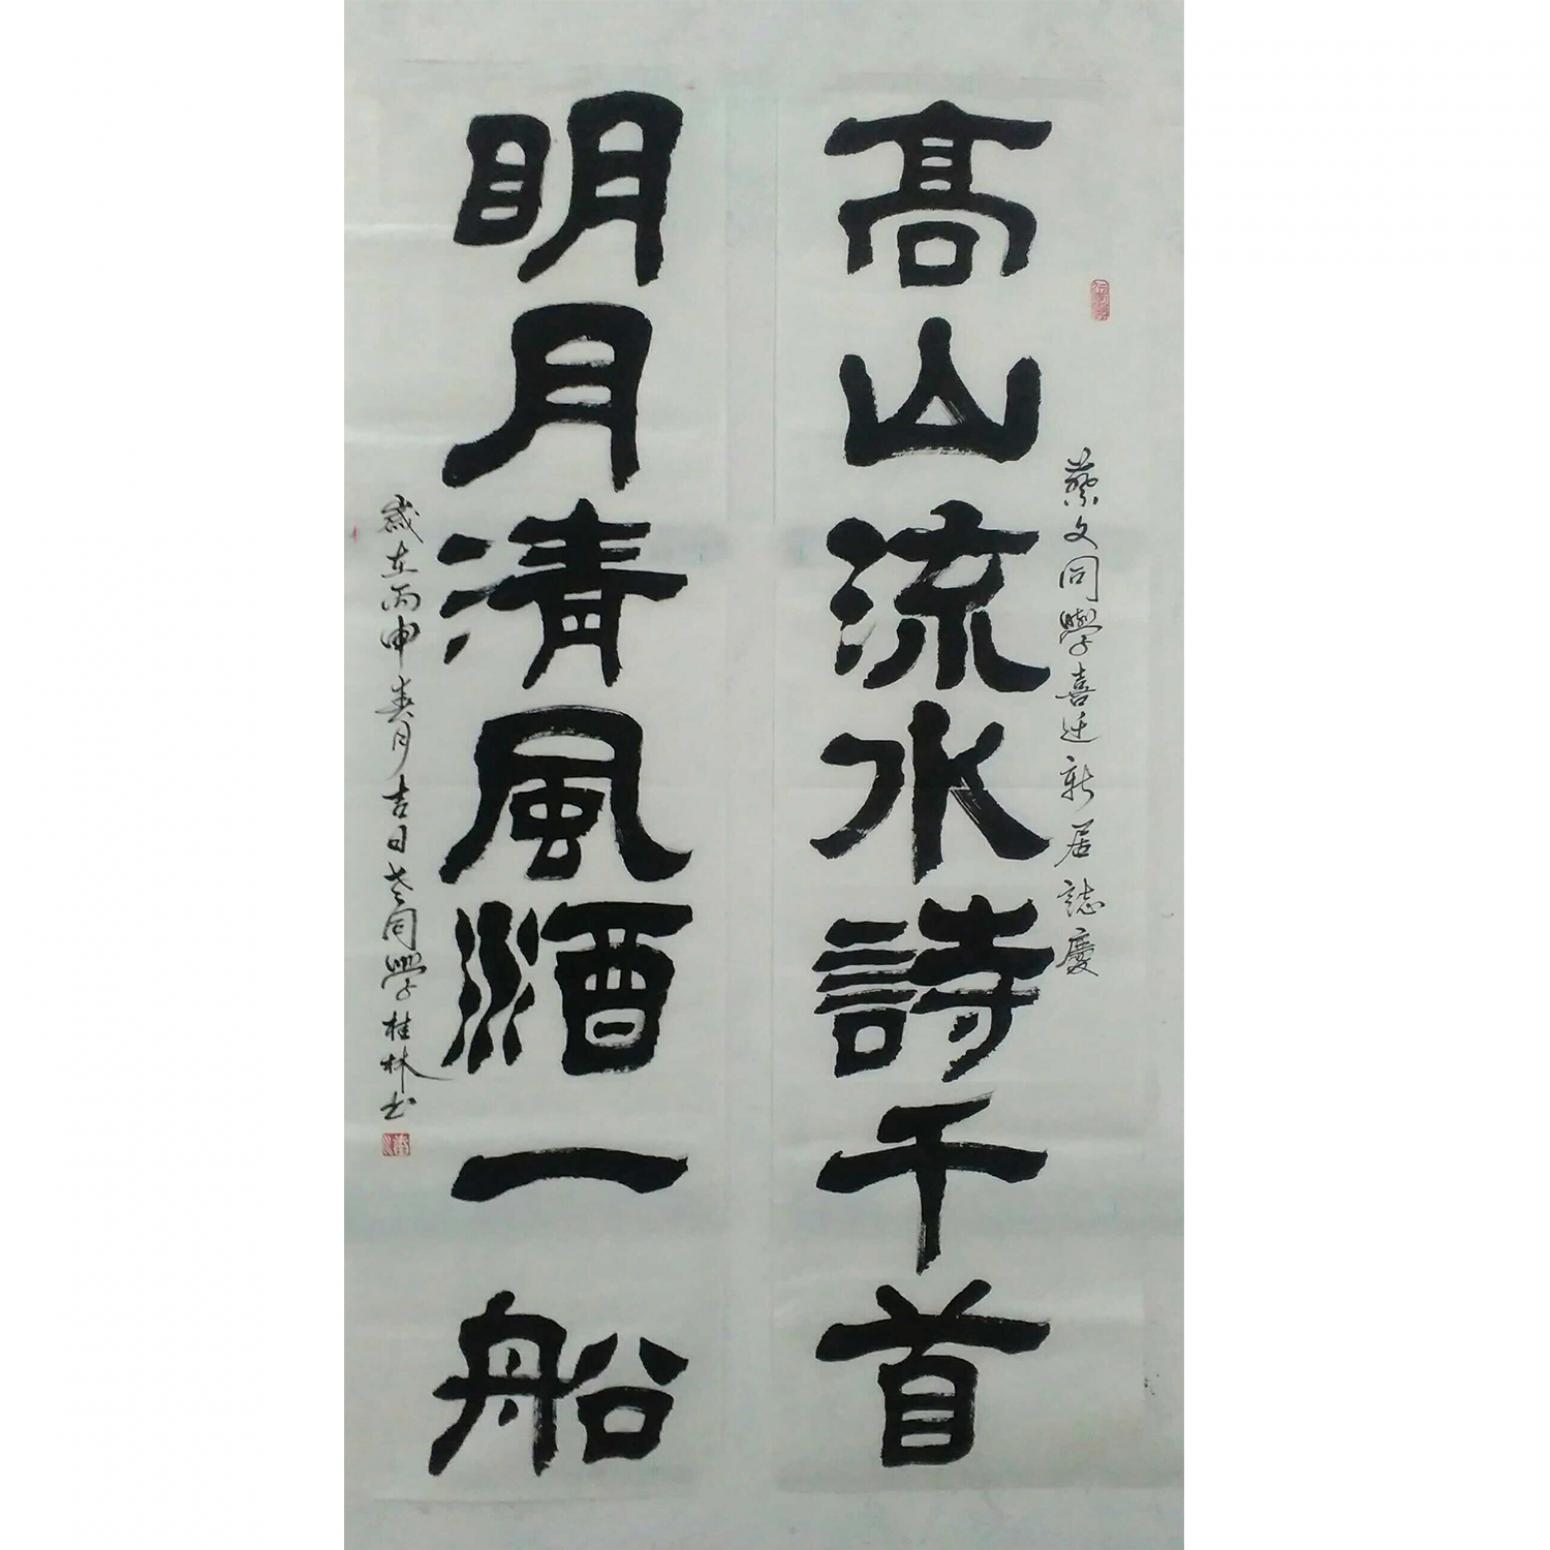 蔡文同學喜迁新居誌慶
髙山流水詩千首
眀月清風酒一船
歲在丙申月吉日老同學桂林书